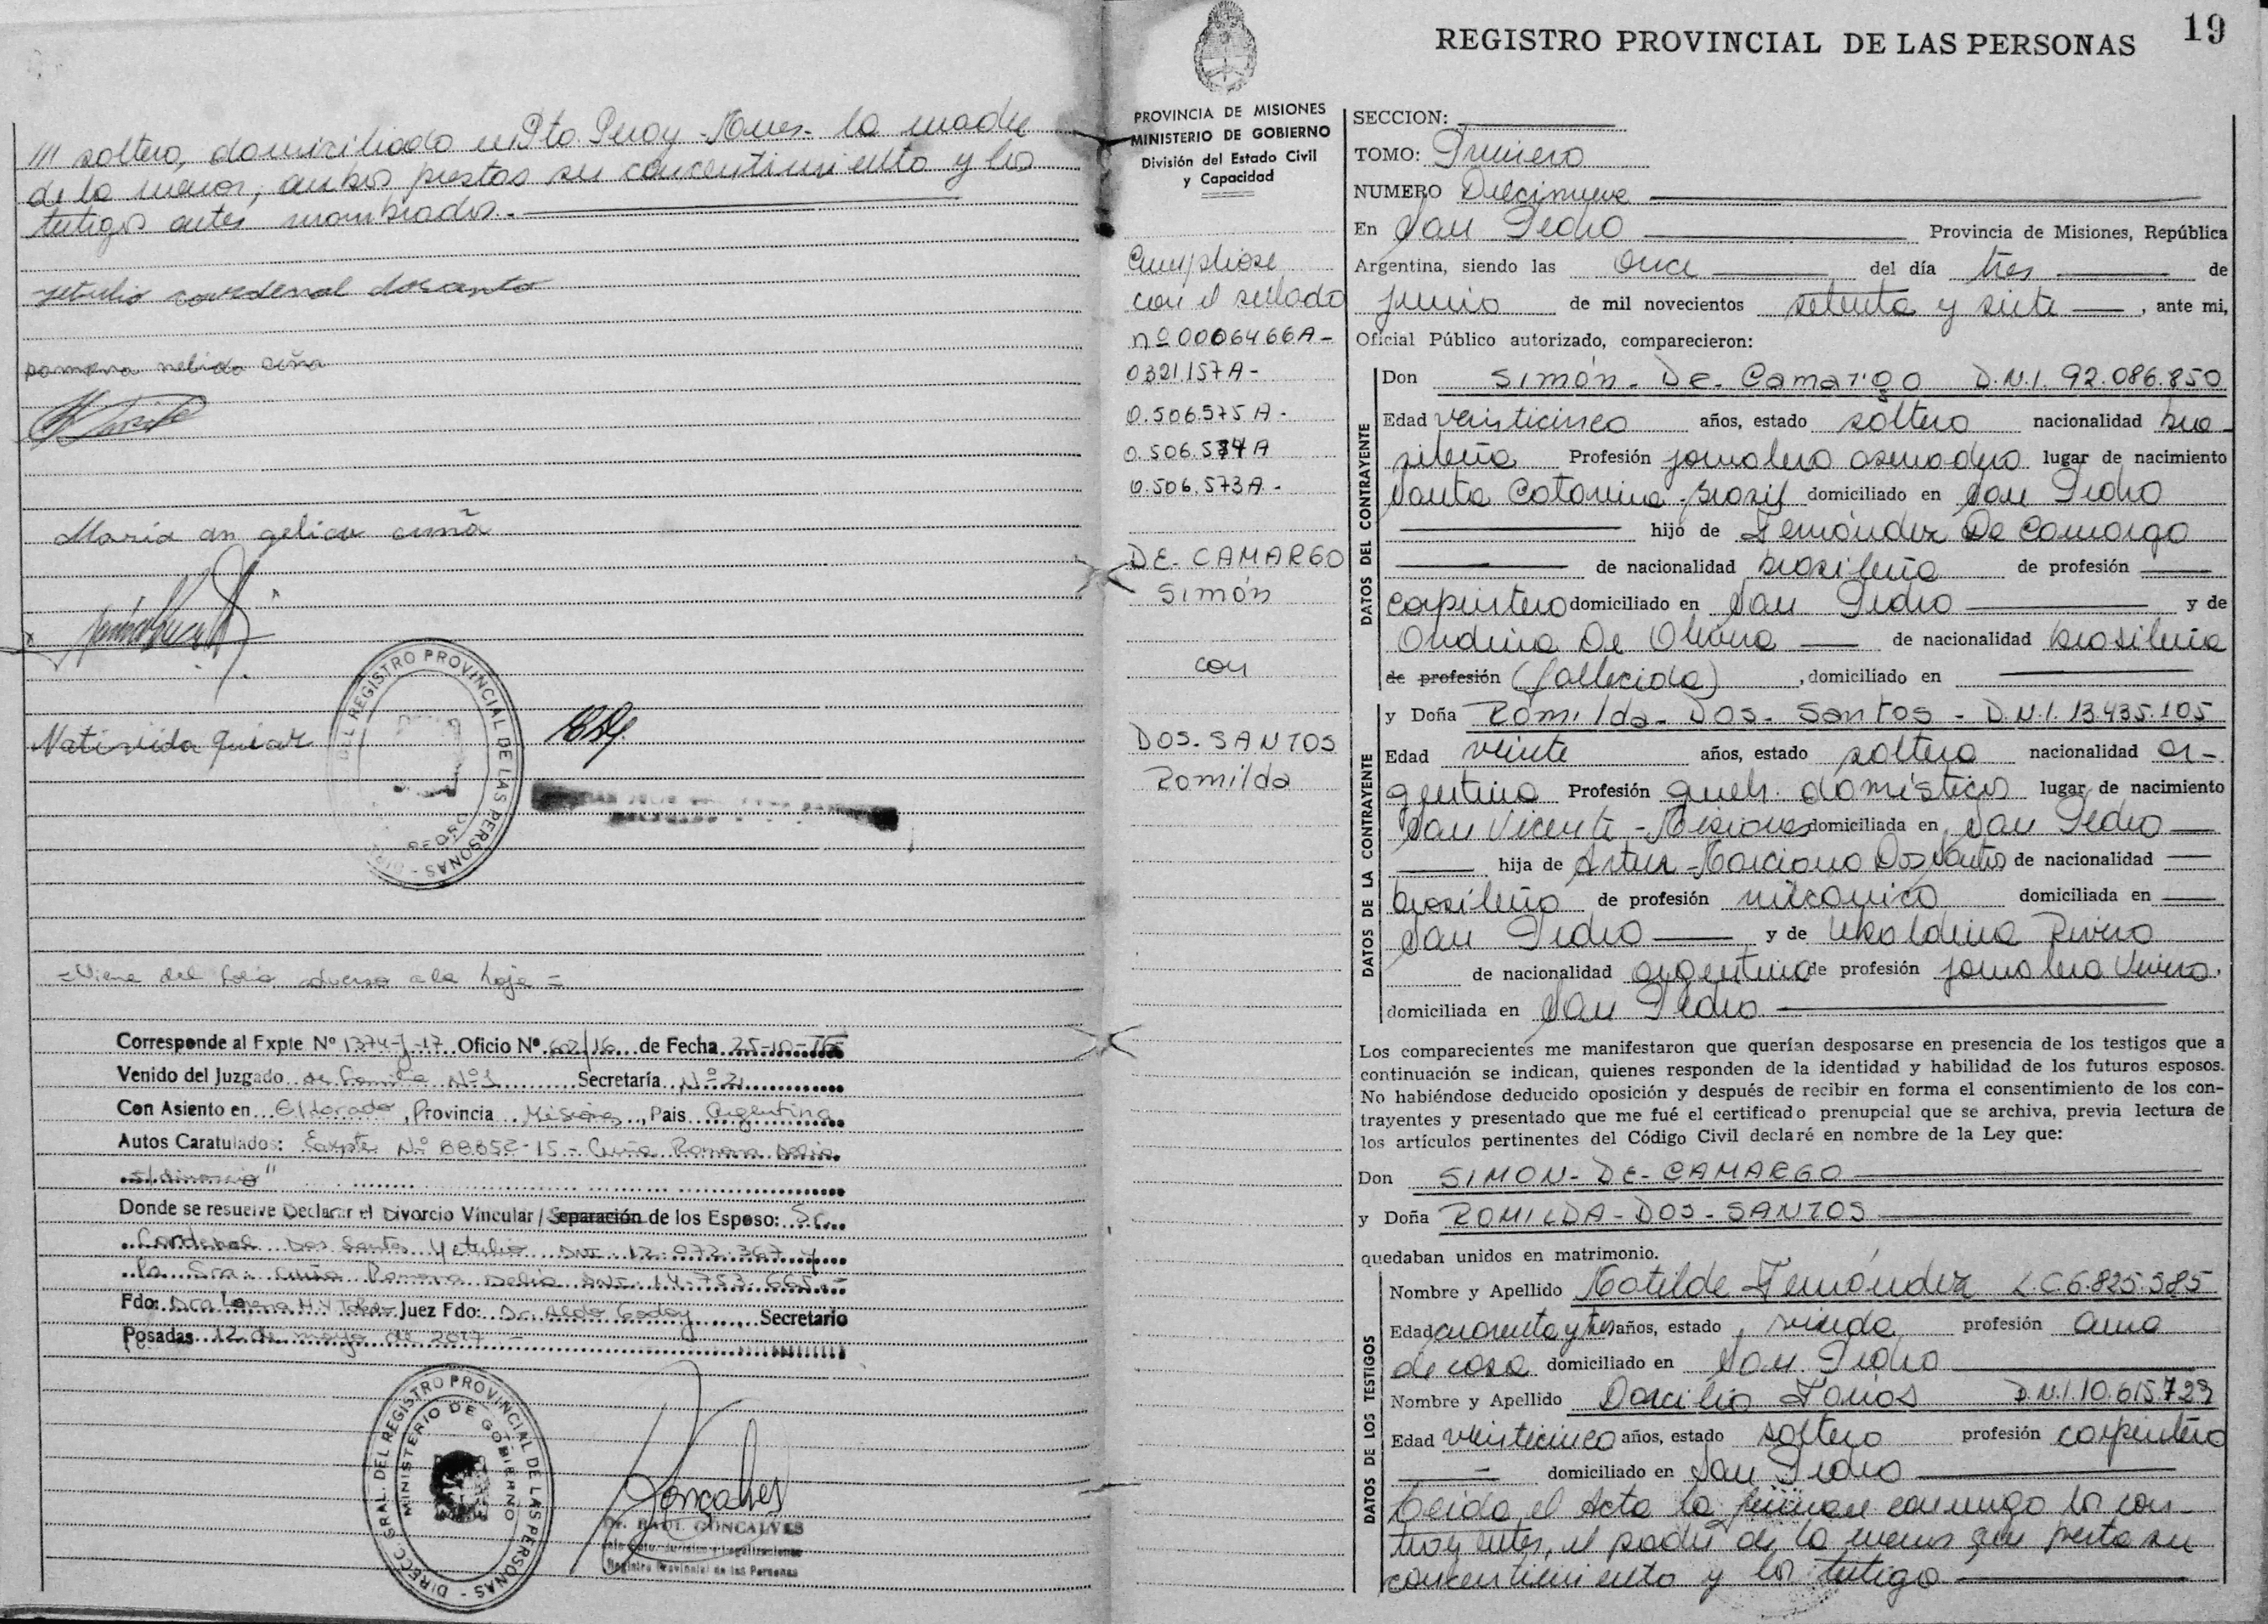 /// soltero, domiciliado en Pto. Piray -Mnes- la madre
de la menor, ambos prestas su concentimiento y los
testigos antes nombrados.-
yetulio cardenal dosanto
pamona nelida cuña
Maria an gelica cuña
Nativida
DEL REGISTRO PROVINCIAL DE LAS PERSONAS
=Viene del folio adverso a la hoja=
Corresponde al Expte Nº 1374-J-17 Oficio Nº 602/16 de Fecha 25-10-16
Venido del Juzgado de Familia Nº1 Secretaría Nº2
Con Asiento en Eldorado, Provincia Misiones, Pais Argentina
Autos Caratulados: Expte Nº 88852-15 - Cuña Ramona Delia
s/divorcio"
Donde se resuelve Declarar el Divorcio Vincular / Separación de los Esposo: Sr.
Cardenal Dos Santos Yetulio DNI 12.072.367 y
la Sra. Cuña Ramona Delia DNI 14.753.665.-
Fdo: Dra Lorena Juez Fdo: Dr. Aldo Godoy Secretario
Posadas 12 de mayo de 2017.-
DIRECC. GRAL. DEL REGISTRO PROVINCIAL DE LAS PERSONAS
MINISTERIO DE GOBIERNO
Goncalves
Dr. RAUL GONCALVES
Registro Provincial de las Personas
19
REGISTRO PROVINCIAL DE LAS PERSONAS
PROVINCIA DE MISIONES
MINISTERIO DE GOBIERNO
División del Estado Civil
y Capacidad
Cumpliose
con el sellado
nº 0006466A-
0321.157A-
0.506.575A-
0.506.574A
0.506.573A-
DE-CAMARGO
Simón
con
DOS-SANTOS
Romilda
SECCION:
TOMO: Primero
NUMERO Diecinueve
En San Pedro Provincia de Misiones, República
Argentina, siendo las once del día tres de
junio de mil novecientos setenta y siete, ante mi,
Oficial Público autorizado, comparecieron:
DATOS DEL CONTRAYENTE
Don Simón-De-Camargo D.N.I. 92.086.850
Edad veinticinco años, estado soltero nacionalidad bra-
sileña Profesión jornalero aserradero lugar de nacimiento
Santa Catarina-Brasil domiciliado en San Pedro
hijo de Fernández De Camargo
de nacionalidad brasileña de profesión
carpintero domiciliado en San Pedro y de
Ondina De Olivera de nacionalidad brasileña
de profesión (fallecida), domiciliado en
DATOS DE LA CONTRAYENTE
y Doña Romilda-Dos-Santos-D.N.I. 13.435.105
Edad veinte años, estado soltera nacionalidad ar-
gentina Profesión queh. domésticos lugar de nacimiento
San Vicente-Misiones domiciliada en San Pedro
hija de Artur Marciano Dos Santos de nacionalidad
brasileño de profesión mecánico domiciliada en
San Pedro y de Ubaldina Rivero
de nacionalidad argentina de profesión jornalera Vivero.
domiciliada en San Pedro
Los comparecientes me manifestaron que querían desposarse en presencia de los testigos que a
continuación se indican, quienes responden de la identidad y habilidad de los futuros esposos.
No habiéndose deducido oposición y después de recibir en forma el consentimiento de los con-
trayentes y presentado que me fué el certificado prenupcial que se archiva, previa lectura de
los artículos pertinentes del Código Civil declaré en nombre de la Ley que:
Don SIMON-DE-CAMARGO
y Doña ROMILDA-DOS-SANTOS
quedaban unidos en matrimonio.
DATOS DE LOS TESTIGOS
Nombre y Apellido Matilde Fernández L.C 6.825.585
Edad cuarenta y tres años, estado viuda profesión ama
de casa domiciliado en San Pedro
Nombre y Apellido Darcilio Farias D.N.I.10.615.729
Edad veinticinco años, estado soltero profesión carpintero
domiciliado en San Pedro
Leída el Acta la firman conmigo los con-
trayentes, el padre de la menor que presta su
concentimiento y los testigo